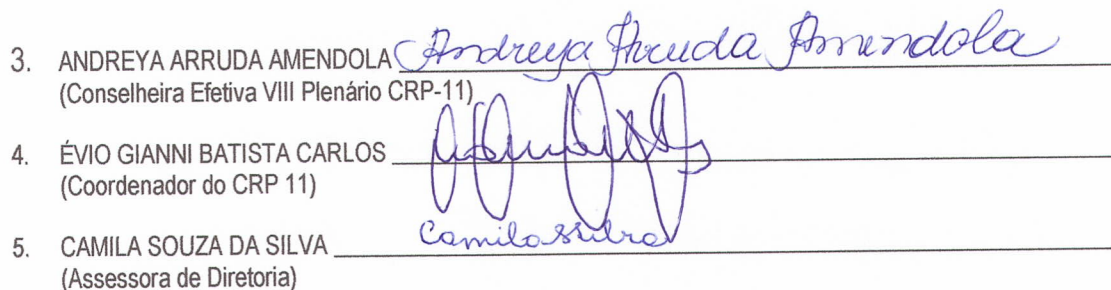 3. ANDREYA ARRUDA AMENDOLA Andreya Arruda Amendola
(Conselheira Efetiva VIII Plenário CRP-11)
4. ÉVIO GIANNI BATISTA CARLOS
(Coordenador do CRP 11)
5. CAMILA SOUZA DA SILVA Camilassilva
(Assessora de Diretoria)